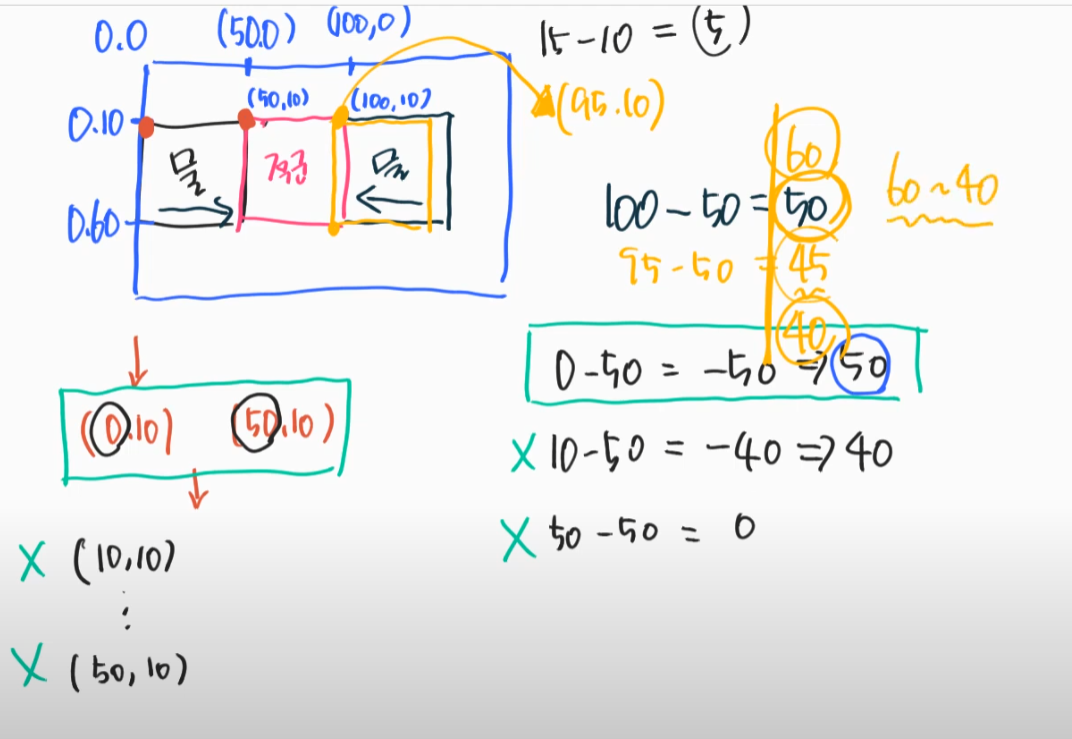 0.0 (50.0) (100,0)
15-10 = (5)
(50,10) (100,10)
(95.10)
0.10
60
100-50 = 50
60~40
0.60
95-50 = 45
40
0-50 = -50 => 50
(0.10) (50.10)
X 10-50 = -40 => 40
X 50-50 = 0
X (10,10)
⋮
X (50,10)